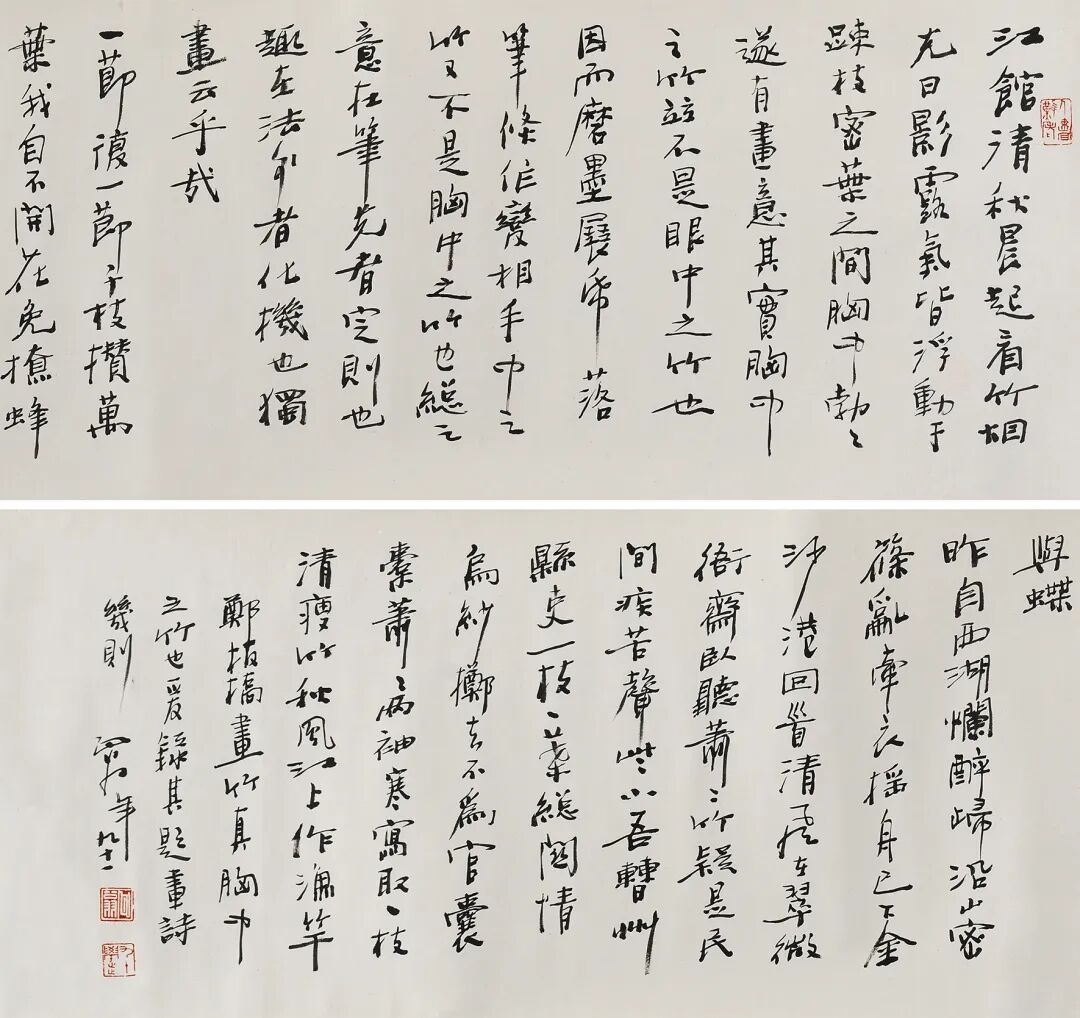 江館清秋晨起看竹烟
光日影露氣皆浮動于
疎枝密葉之間胸中勃々
遂有畫意其實胸中
之竹竝不是眼中之竹也
因而磨墨展紙落
筆倏作變相手中之
竹又不是胸中之竹也總之
意在筆先者定則也
趣在法外者化機也獨
畫云乎哉
一節復一節千枝攢萬
葉我自不開花免撩蜂
與蝶
昨自西湖爛醉歸沿山密
篠亂牽衣搖身已下金
沙港回首清風在翠微
衙齋臥聽蕭々竹疑是民
間疾苦聲些小吾曹州
縣吏一枝一葉總關情
烏紗擲去不爲官囊
橐蕭々兩袖寒寫取一枝
清瘦竹秋風江上作漁竿
鄭板橋畫竹真胸中
之竹也爰錄其題畫詩
幾則 年九十一